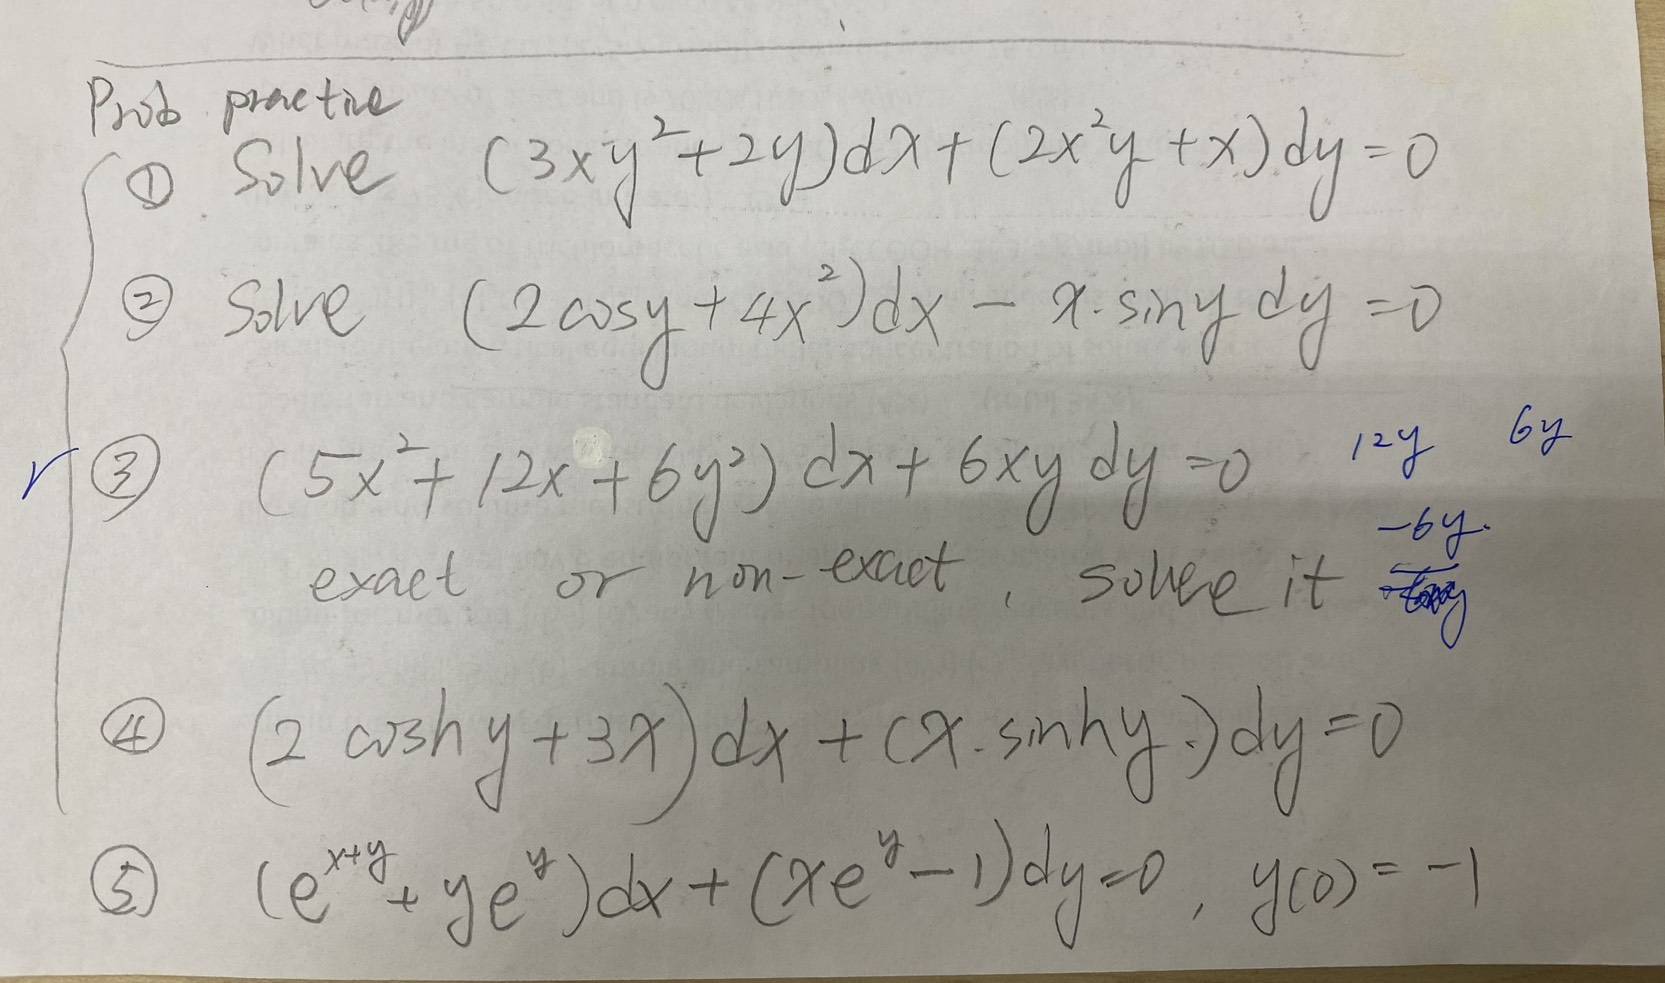 Prob practice
① Solve (3xy²+2y)dx+(2x²y+x)dy=0
② Solve (2cosy+4x²)dx - x·siny dy=0
③ (5x²+12x+6y²)dx+6xy dy=0 12y 6y
-6y.
exact or non-exact, solve it
④ (2 coshy+3x)dx+(x·sinhy·)dy=0
⑤ (e^{x+y}+ye^y)dx+(xe^y-1)dy=0, y(0)=-1